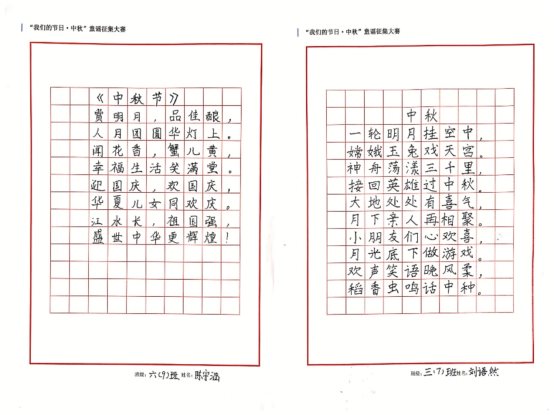 “我们的节日·中秋”童谣征集大赛
《中秋节》
赏明月，品佳酿，
人月团圆华灯上。
闻花香，蟹儿黄，
幸福生活笑满堂。
迎国庆，欢国庆，
华夏儿女同欢庆。
江水长，祖国强，
盛世中华更辉煌！
班级：六(9)班 姓名：陈宇涵
“我们的节日·中秋”童谣征集大赛
中秋
一轮明月挂空中，
嫦娥玉兔戏天宫。
神舟荡漾三千里，
接回英雄过中秋。
大地处处有喜气，
月下亲人再相聚。
小朋友们心欢喜，
月光底下做游戏。
欢声笑语晚风柔，
稻香虫鸣话中种。
班级：三(7)班 姓名：刘语然